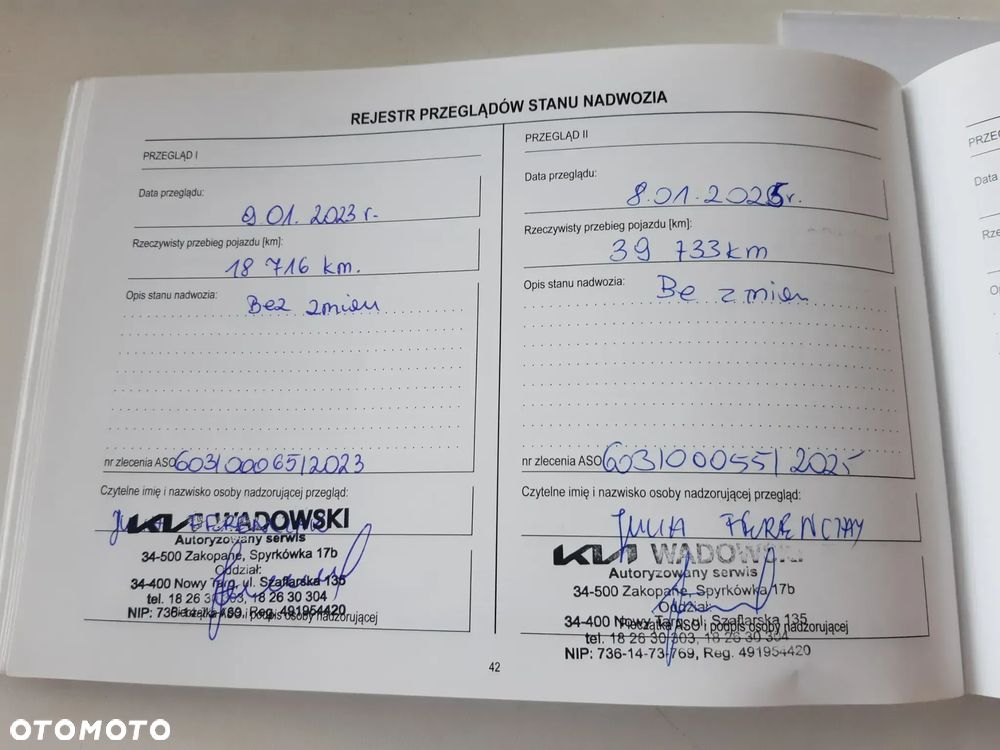 REJESTR PRZEGLĄDÓW STANU NADWOZIA
PRZEGLĄD I
Data przeglądu:
9.01.2023 r.
Rzeczywisty przebieg pojazdu [km]:
18 716 km.
Opis stanu nadwozia:
Bez zmian
nr zlecenia ASO 6031000651/2023
Czytelne imię i nazwisko osoby nadzorującej przegląd:
KIA WADOWSKI
Autoryzowany serwis
34-500 Zakopane, Spyrkówka 17b
Oddział:
34-400 Nowy Targ, ul. Szaflarska 135
tel. 18 26 30 303, 18 26 30 304
NIP: 736-14-73-769, Reg. 491954420
Pieczątka ASO i podpis osoby nadzorującej
PRZEGLĄD II
Data przeglądu:
8.01.2025r.
Rzeczywisty przebieg pojazdu [km]:
39 733 km
Opis stanu nadwozia:
Be zmian
nr zlecenia ASO 603100055/2025
Czytelne imię i nazwisko osoby nadzorującej przegląd:
KIA WADOWSKI
Autoryzowany serwis
34-500 Zakopane, Spyrkówka 17b
Oddział:
34-400 Nowy Targ, ul. Szaflarska 135
Pieczątka ASO i podpis osoby nadzorującej
tel. 18 26 30 303, 18 26 30 304
NIP: 736-14-73-769, Reg. 491954420
42
PRZE
Data
Rze
OTOMOTO